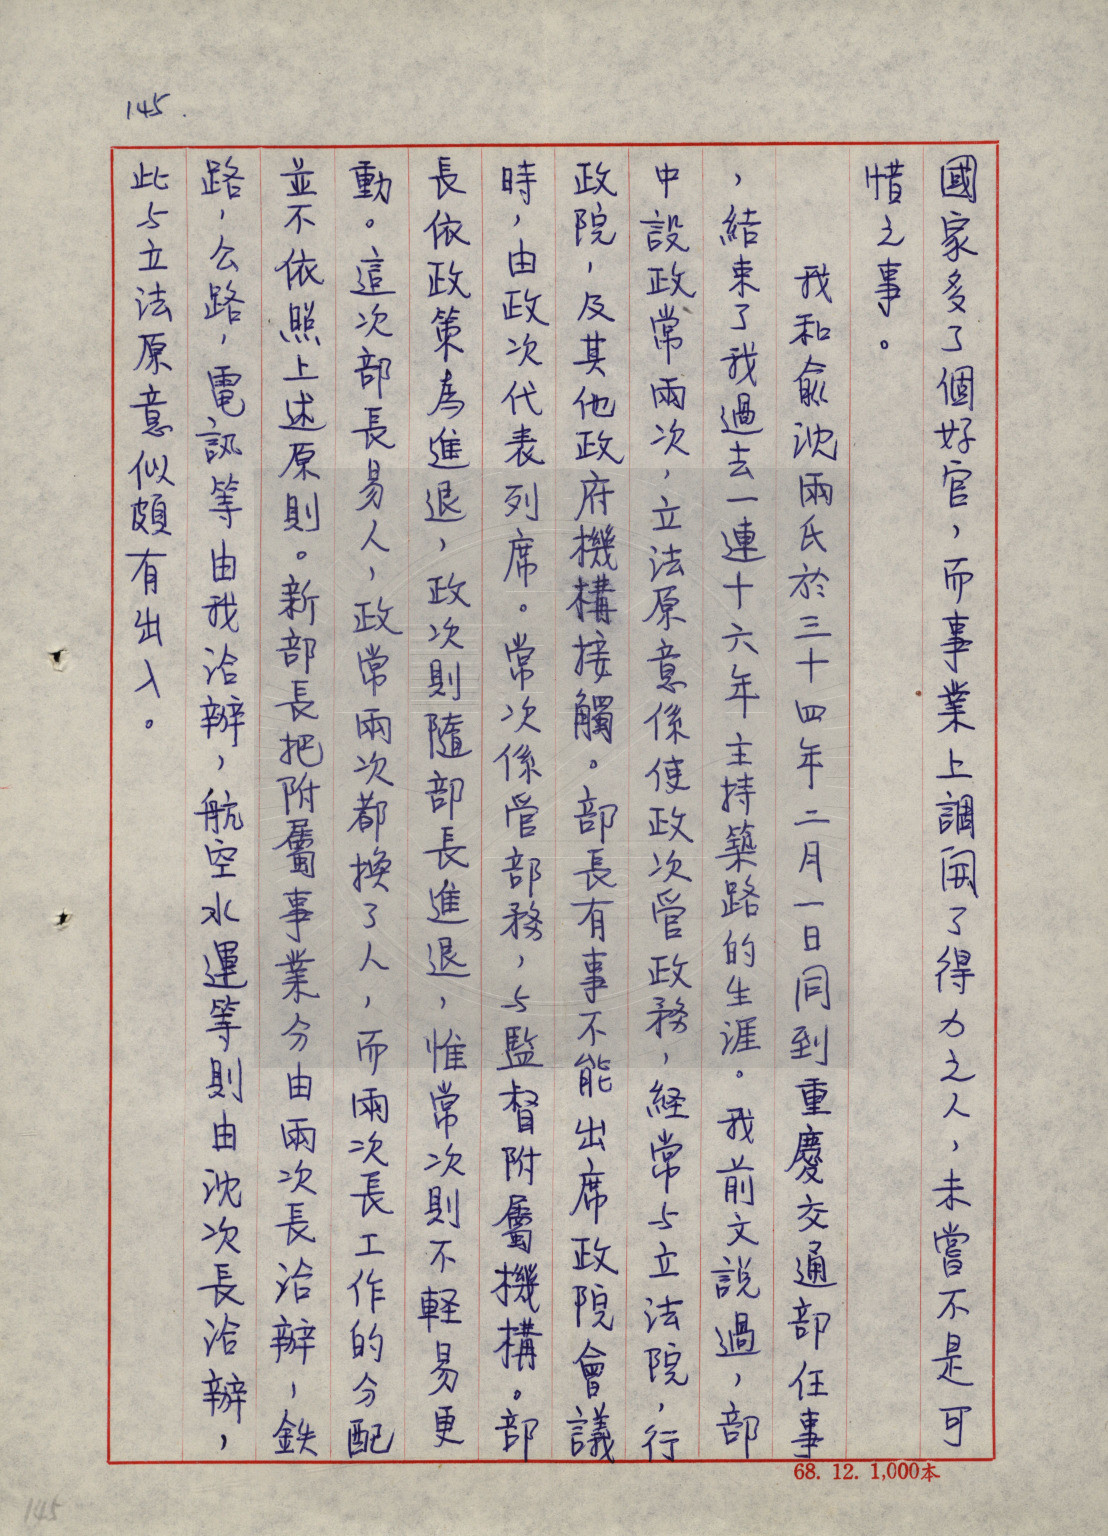 145.
國家多了個好官，而事業上調開了得力之人，未嘗不是可
惜之事。
我和俞沈兩氏於三十四年二月一日同到重慶交通部任事
，結束了我過去一連十六年主持築路的生涯。我前文說過，部
中設政常兩次，立法原意係使政次管政務，経常与立法院，行
政院，及其他政府機構接觸。部長有事不能出席政院會議
時，由政次代表列席。常次係管部務，与監督附屬機構。部
長依政策為進退，政次則隨部長進退，惟常次則不軽易更
動。這次部長易人，政常兩次都換了人，而兩次長工作的分配
並不依照上述原則。新部長把附屬事業分由兩次長洽辦，鉄
路，公路，電訊等由我洽辦，航空水運等則由沈次長洽辦，
此与立法原意似頗有出入。
68. 12. 1,000本
145